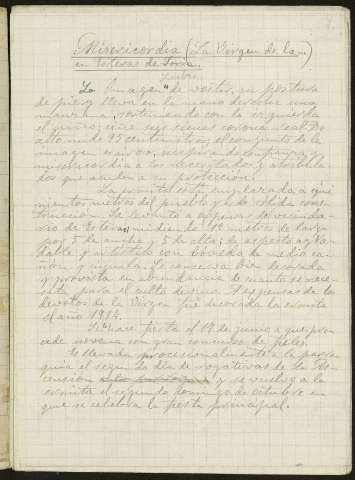 Misericordia (La Virgen de la...)
en Esteras de Soria.
La Imagen de vestir, en postura
de pie, lleva en la mano derecha una
manzana, sosteniendo con la izquierda
el niño; ciñe sus sienes corona real. De
alto mide 95 centímetros, el conjunto de la
imagen es airoso, inspira confianza y
misericordia a los desventados y atribula-
dos que acuden a su protección.
La ermita está emplazada a qui
nientos metros del pueblo y es de sólida cons-
trucción. Se levantó a expensas del vecinda-
rio de Esteras, midiendo 12 metros de larga
por 5 de ancha y 5 de alta; de aspecto agra-
dable y vistoso con bóveda de medio ca-
ñón, y intacta la conserva bien decorada
y provista en abundancia de cuanto se nece-
sita para el culto divino. A expensas de los
devotos de la Virgen fué decorada la ermita
el año 1914.
Se hace fiesta el 19 de junio a que pre-
cede novena con gran concurso de fieles.
Es llevada procesionalmente a la parro-
quia el segundo día de rogativas de la As-
censión y se vuelve a la
ermita el segundo domingo de octubre en
que se celebra la fiesta principal.